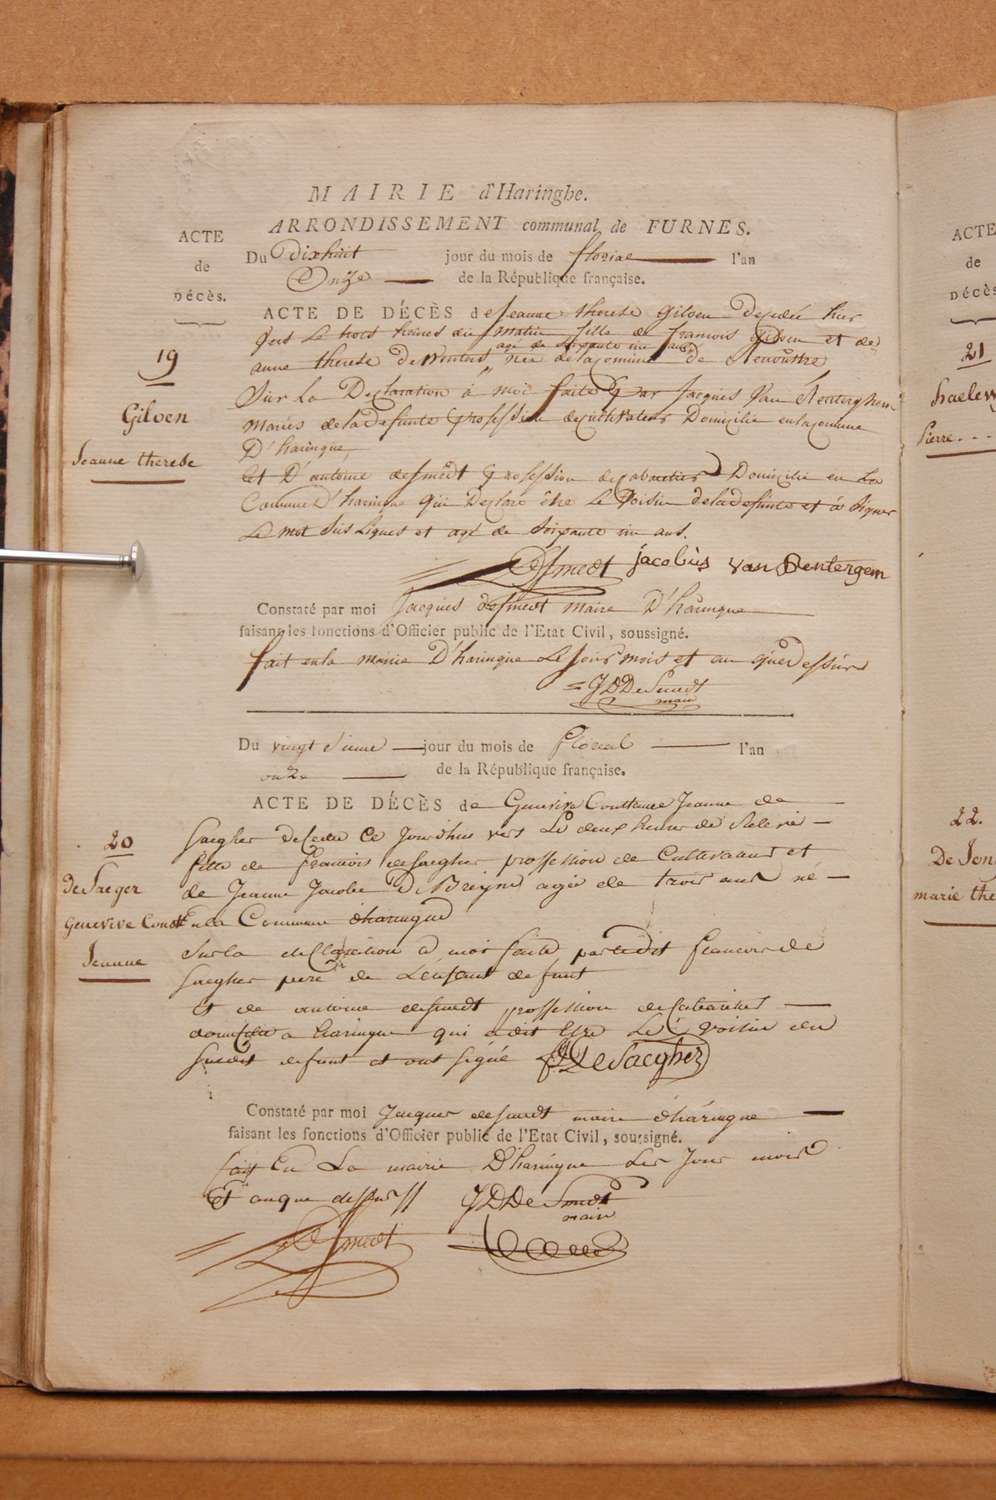 MAIRIE d'Haringhe.
ARRONDISSEMENT communal de FURNES.
ACTE
de
DÉCÈS.
Du Dixhuit jour du mois de floréal l'an
Onze de la République française.
19
Giloen
Jeanne therese
ACTE DE DÉCÈS de Jeanne therese Giloen Decedée hier
vers Le trois heures du matin fille de francois Giloen et de
agé de soixante un ans
anne therese née de la Comune de
Sur La Declaration à moi faite par Jacques Van Renterghem
Maries de la defunte profession de cultivateur Domicilié en la Comune
D'haringue,
Et D'antoine desmedt profession de cabaretier Domicilié en La
Comune D'haringue qui Declare être Le Voisin de la defunte et à Signer
Le mot sus Lignes et agé de Soixante un ans.
DeSmedt jacobüs van Rentergem
Constaté par moi Jacques deSmedt maire D'haringue
faisant les fonctions d'Officier public de l'Etat Civil, soussigné.
fait en la mairie D'haringue Le jour mois et an que Dessus
JDDeSmedt
maire
Du vingt jour du mois de floreal l'an
onze de la République française.
20
De Saeger
Genevive Const
Jeanne
ACTE DE DÉCÈS de Genevive Constance Jeanne de
Saegher decedee Ce Jourdhui vers Le deux heure de
fille de francois desaegher proffession de Cultivateur et
de Jeanne Jacoba De Breyne agée de trois ans né
En la Commune dharingue
Sur la declaration a moi faite par ledit francois de
Saegher pere de L'enfant defunt
et de antoine desmedt proffession de Cabaretier
domicilie a haringue qui a dit Etre Le Voisin du
susdit defunt et ont signé DeSaegher
Constaté par moi Jacques desmedt maire dharingue
faisant les fonctions d'Officier public de l'Etat Civil, soussigné.
fait En La mairie Dharingue Les Jour mois
Et an que dessus JDDeSmedt
maire
DeSmedt
ACTE
de
DÉCÈS
21
Pierre
22.
marie the